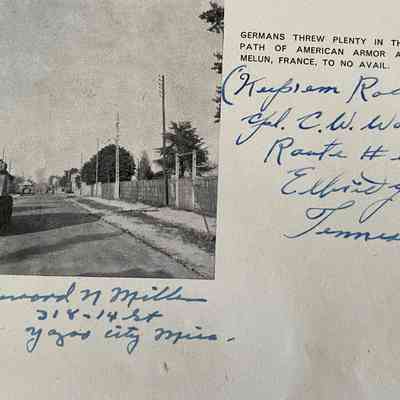 GERMANS THREW PLENTY IN TH
PATH OF AMERICAN ARMOR A
MELUN, FRANCE, TO NO AVAIL.
Cpl. C. W. Wa
Route #
Elbridge
Tennes
Howard N Miller
318-14 St
Yazoo City Miss.